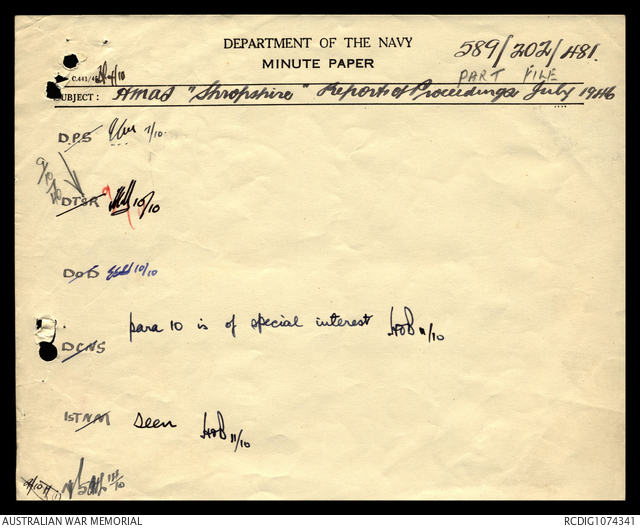 DEPARTMENT OF THE NAVY
MINUTE PAPER
589/202/481.
PART FILE
C.441/45
SUBJECT: HMAS "Shropshire" Reports of Proceedings July 1946
D.P.S 7/10.
9/10
DTSR 10/10
DOD 10/10
para 10 is of special interest 11/10
DCNS
1ST N.M seen 11/10
AUSTRALIAN WAR MEMORIAL
RCDIG1074341